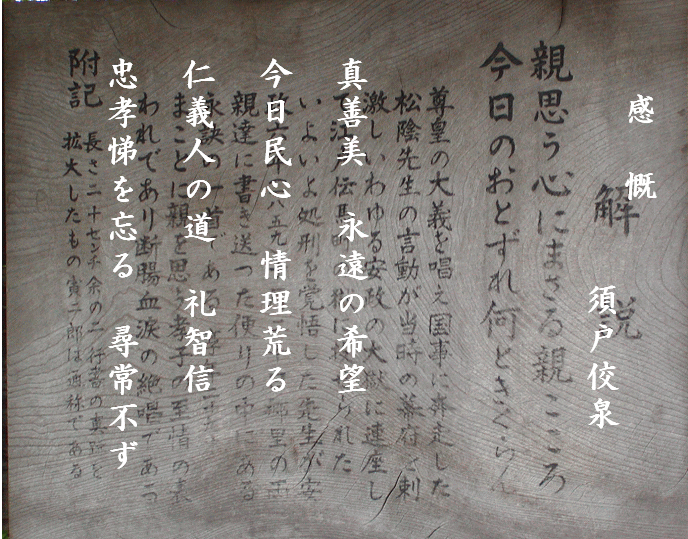 感慨
須戸佼泉
真善美 永遠の希望
今日民心 情理荒る
仁義人の道 礼智信
忠孝悌を忘る 尋常不ず
解説
親思う心にまさる親こころ
今日のおとずれ何ときくらん
尊皇の大義を唱え国事に奔走した
松陰先生の言動が当時の幕府を刺
激しいわゆる安政の大獄に連座し
いよいよ処刑を覚悟した先生が安
親達に書き送った便りの中にある
まことに親を思う孝子の至情の表
われであり断腸血涙の絶唱であつ
附記 長さ二十センチ余の二行書の真跡を
拡大したもの 寅二郎は通称である